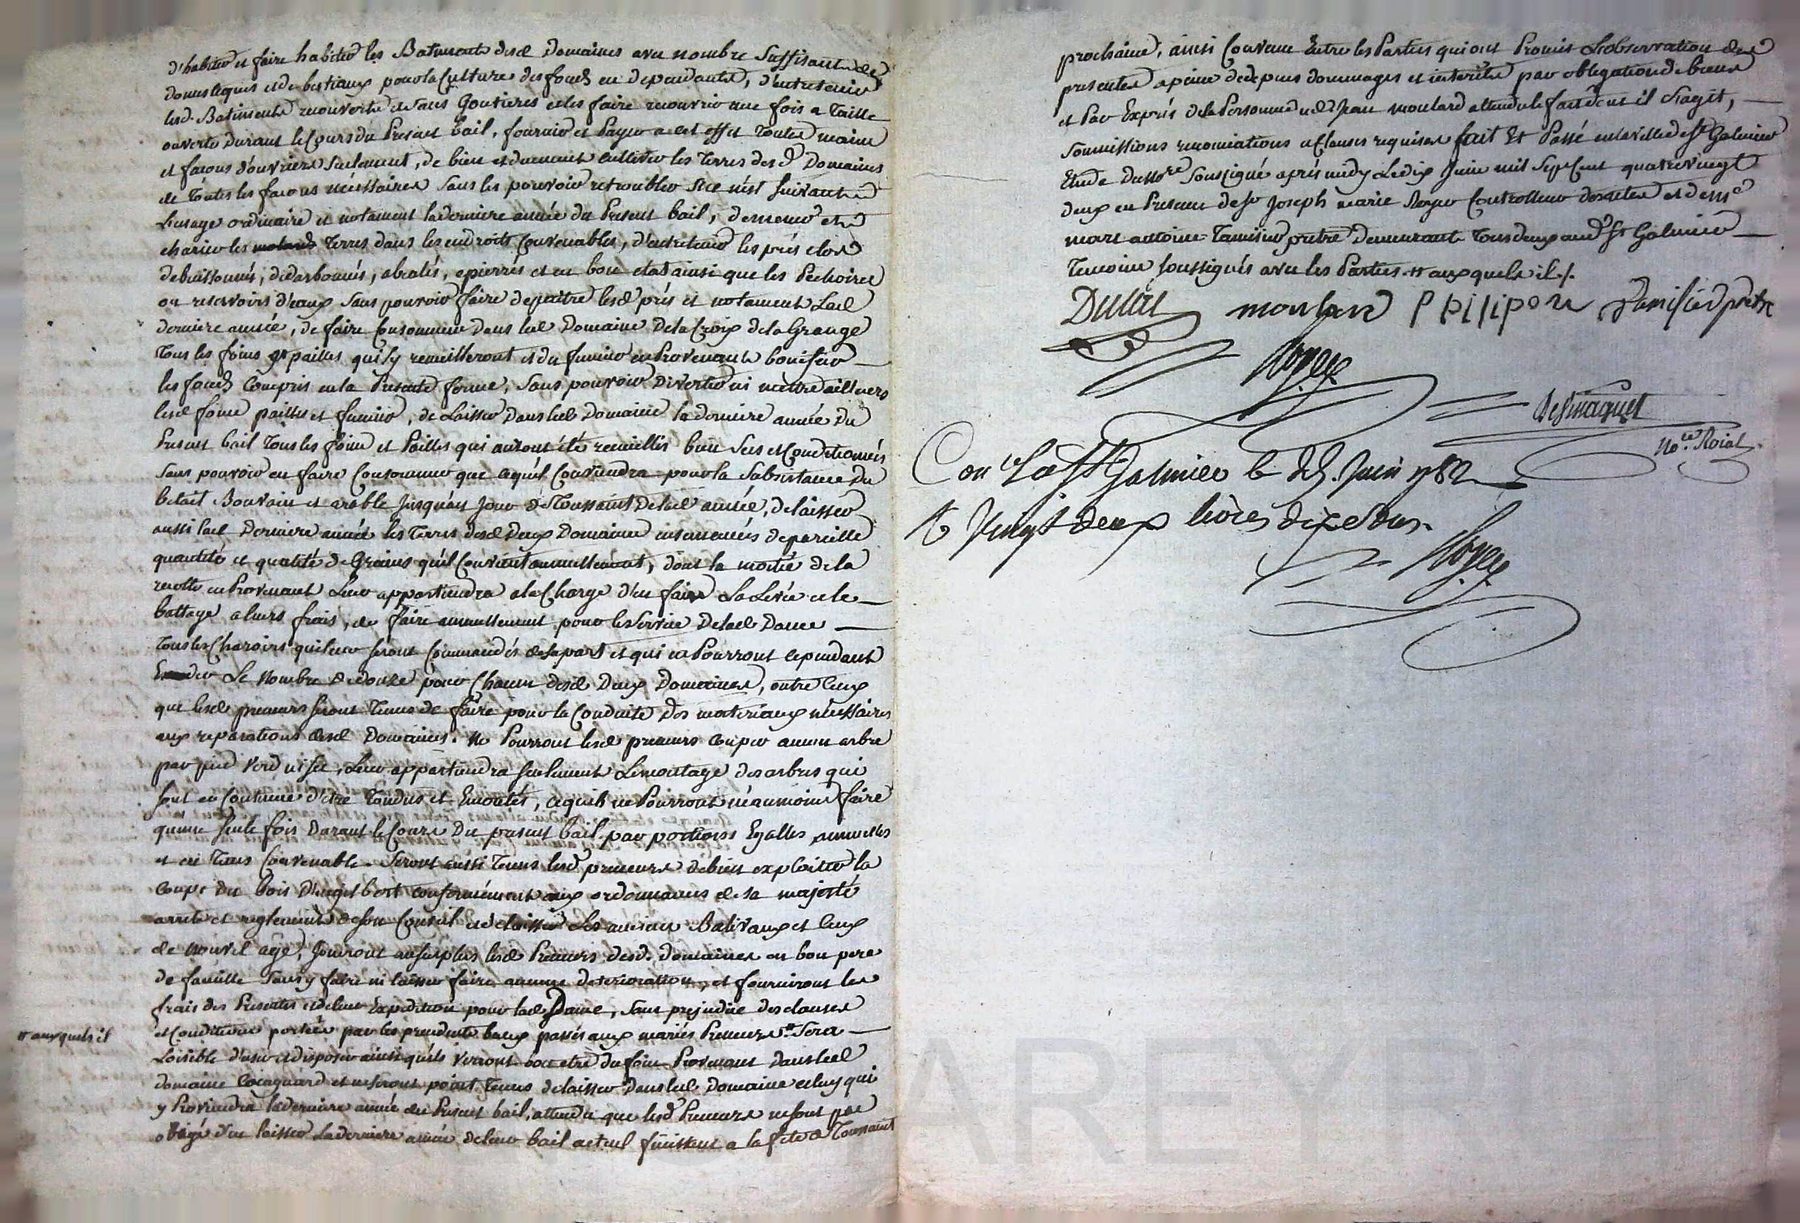 d'habiter et faire habiter les Batiments desd Domaines avec nombre Suffisant de
domestiques et de bestiaux pour la Culture des fonds en dependants, d'entretenir
lesd. Batiments recouverts et sans Goutieres et les faire recouvrir une fois a Taille
ouverte durant le Cours du Present bail, fournir et Payer a cet effet Toutes mains
et façons d'ouvriers Seulement, de bien et duement cultiver les Terres desd. Domaines
de Toutes les façons nécessaires Sans les pouvoir retroubler Si ce n'est Suivant
L'usage ordinaire et notament la derniere année du Present bail, de mener et
charier les Terres dans les endroits Convenables, d'entretenir les prés clos
debuissonnés, abealés, epierrés et en bon etat ainsi que les Pechoires
ou reservoirs d'eaux Sans pouvoir faire depaitre lesd prés et notament Lad
derniere année, de faire Consommer dans led Domaine De la Croix de la Grange
Tous les foins et pailles qui s'y recueilleront et du fumier en Provenant bonifier
les fonds Compris en la Presente ferme, Sans pouvoir Divertir ni mettre ailleurs
lesd foins pailles et fumier, de Laisser Dans led Domaine la derniere année Du
Present bail Tous les foins et Pailles qui auront été recueillis bien Secs et Conditionnés
Sans pouvoir en faire Consommer que ce qu'il Conviendra pour la Subsistance Du
Betail Bouvain et arable Jusqu'au Jour de Toussaint De lad année, de laisser
aussi lad Derniere année les Terres desd Deux Domaines ensemencées de pareille
quantité et qualité de Grains qu'il Convient annuellement, dont la moitié de la
recolte en Provenant Leur appartiendra a la Charge d'en faire La Levée et le
battage a leurs frais, de faire annuellement pour le Service De lad Dame
Tous les Charois qui leur Seront Commandés de sa part et qui ne Pourront cependant
Exceder Le Nombre de douze pour Chacun desd Deux Domaines, outre Ceux
que lesd preneurs Seront Tenus de faire pour la Conduite Des materiaux nécessaires
aux reparations desd Domaines. Ne Pourront lesd preneurs couper aucun arbre
par pied Verd ni sec, Leur appartiendra Seulement L'emontage des arbres qui
Sont en Coutume d'etre Tondus et Emontés, ce qu'ils ne Pourront néanmoins faire
qu'une Seule fois Durant le Cours Du present bail par portions Egalles annuelles
et en Tems Convenable. Seront aussi Tenus lesd preneurs de bien exploiter la
coupe du bois conformément aux ordonnances de Sa majesté
arrets et reglements de son Conseil et de laisser Les anciens Baliveaux et Ceux
de nouvel age, Jouiront au surplus lesd Preneurs desd. Domaines en bon pere
de famille Sans y faire ni laisser faire aucune deterioration, et fourniront les
frais des Presentes et de leur Expedition pour lad Dame, Sans prejudice des clauses
et Conditions portées par les precedents baux passés aux mariés Preneurs # Sera
# auxquels il
Loisible d'user et disposer ainsi qu'ils verront bon etre du foin Provenant Dans led
domaine Cocagnard et ne Seront point Tenus de laisser Dans led Domaine celuy qui
y Proviendra la derniere année du Present bail, attendu que lesd Preneurs ne sont pas
obligé d'en laisser La derniere année de leur bail actuel finissant a la fete de Toussaint
prochaine, ainsi Convenu Entre les Parties qui ont Promis L'observation des
presentes a peine de depens dommages et interets par obligation de biens
et Par Exprès de la Personne dud Jean moulard attendu le fait dont il S'agit,
Soumissions renonciations et Clauses requises fait Et Passé en la ville de St Galmier
Etude Du No.re Soussigné après midy Le dix Juin mil Sept Cent quatre vingt
deux en Presence de Sr Joseph marie Royer Controlleur des actes et de mre
marc antoine Tamisier pretre demeurants Tous deux aud St Galmier
Temoins Soussignés avec les Parties. # auxquels il /.
Dulac moulard Philipon Tamisier pretre
Royer
Desmaquet
No.re Roial
Con.le a St Galmier le dix Juin 1782
R Vingt deux livres dix sols.
Royer